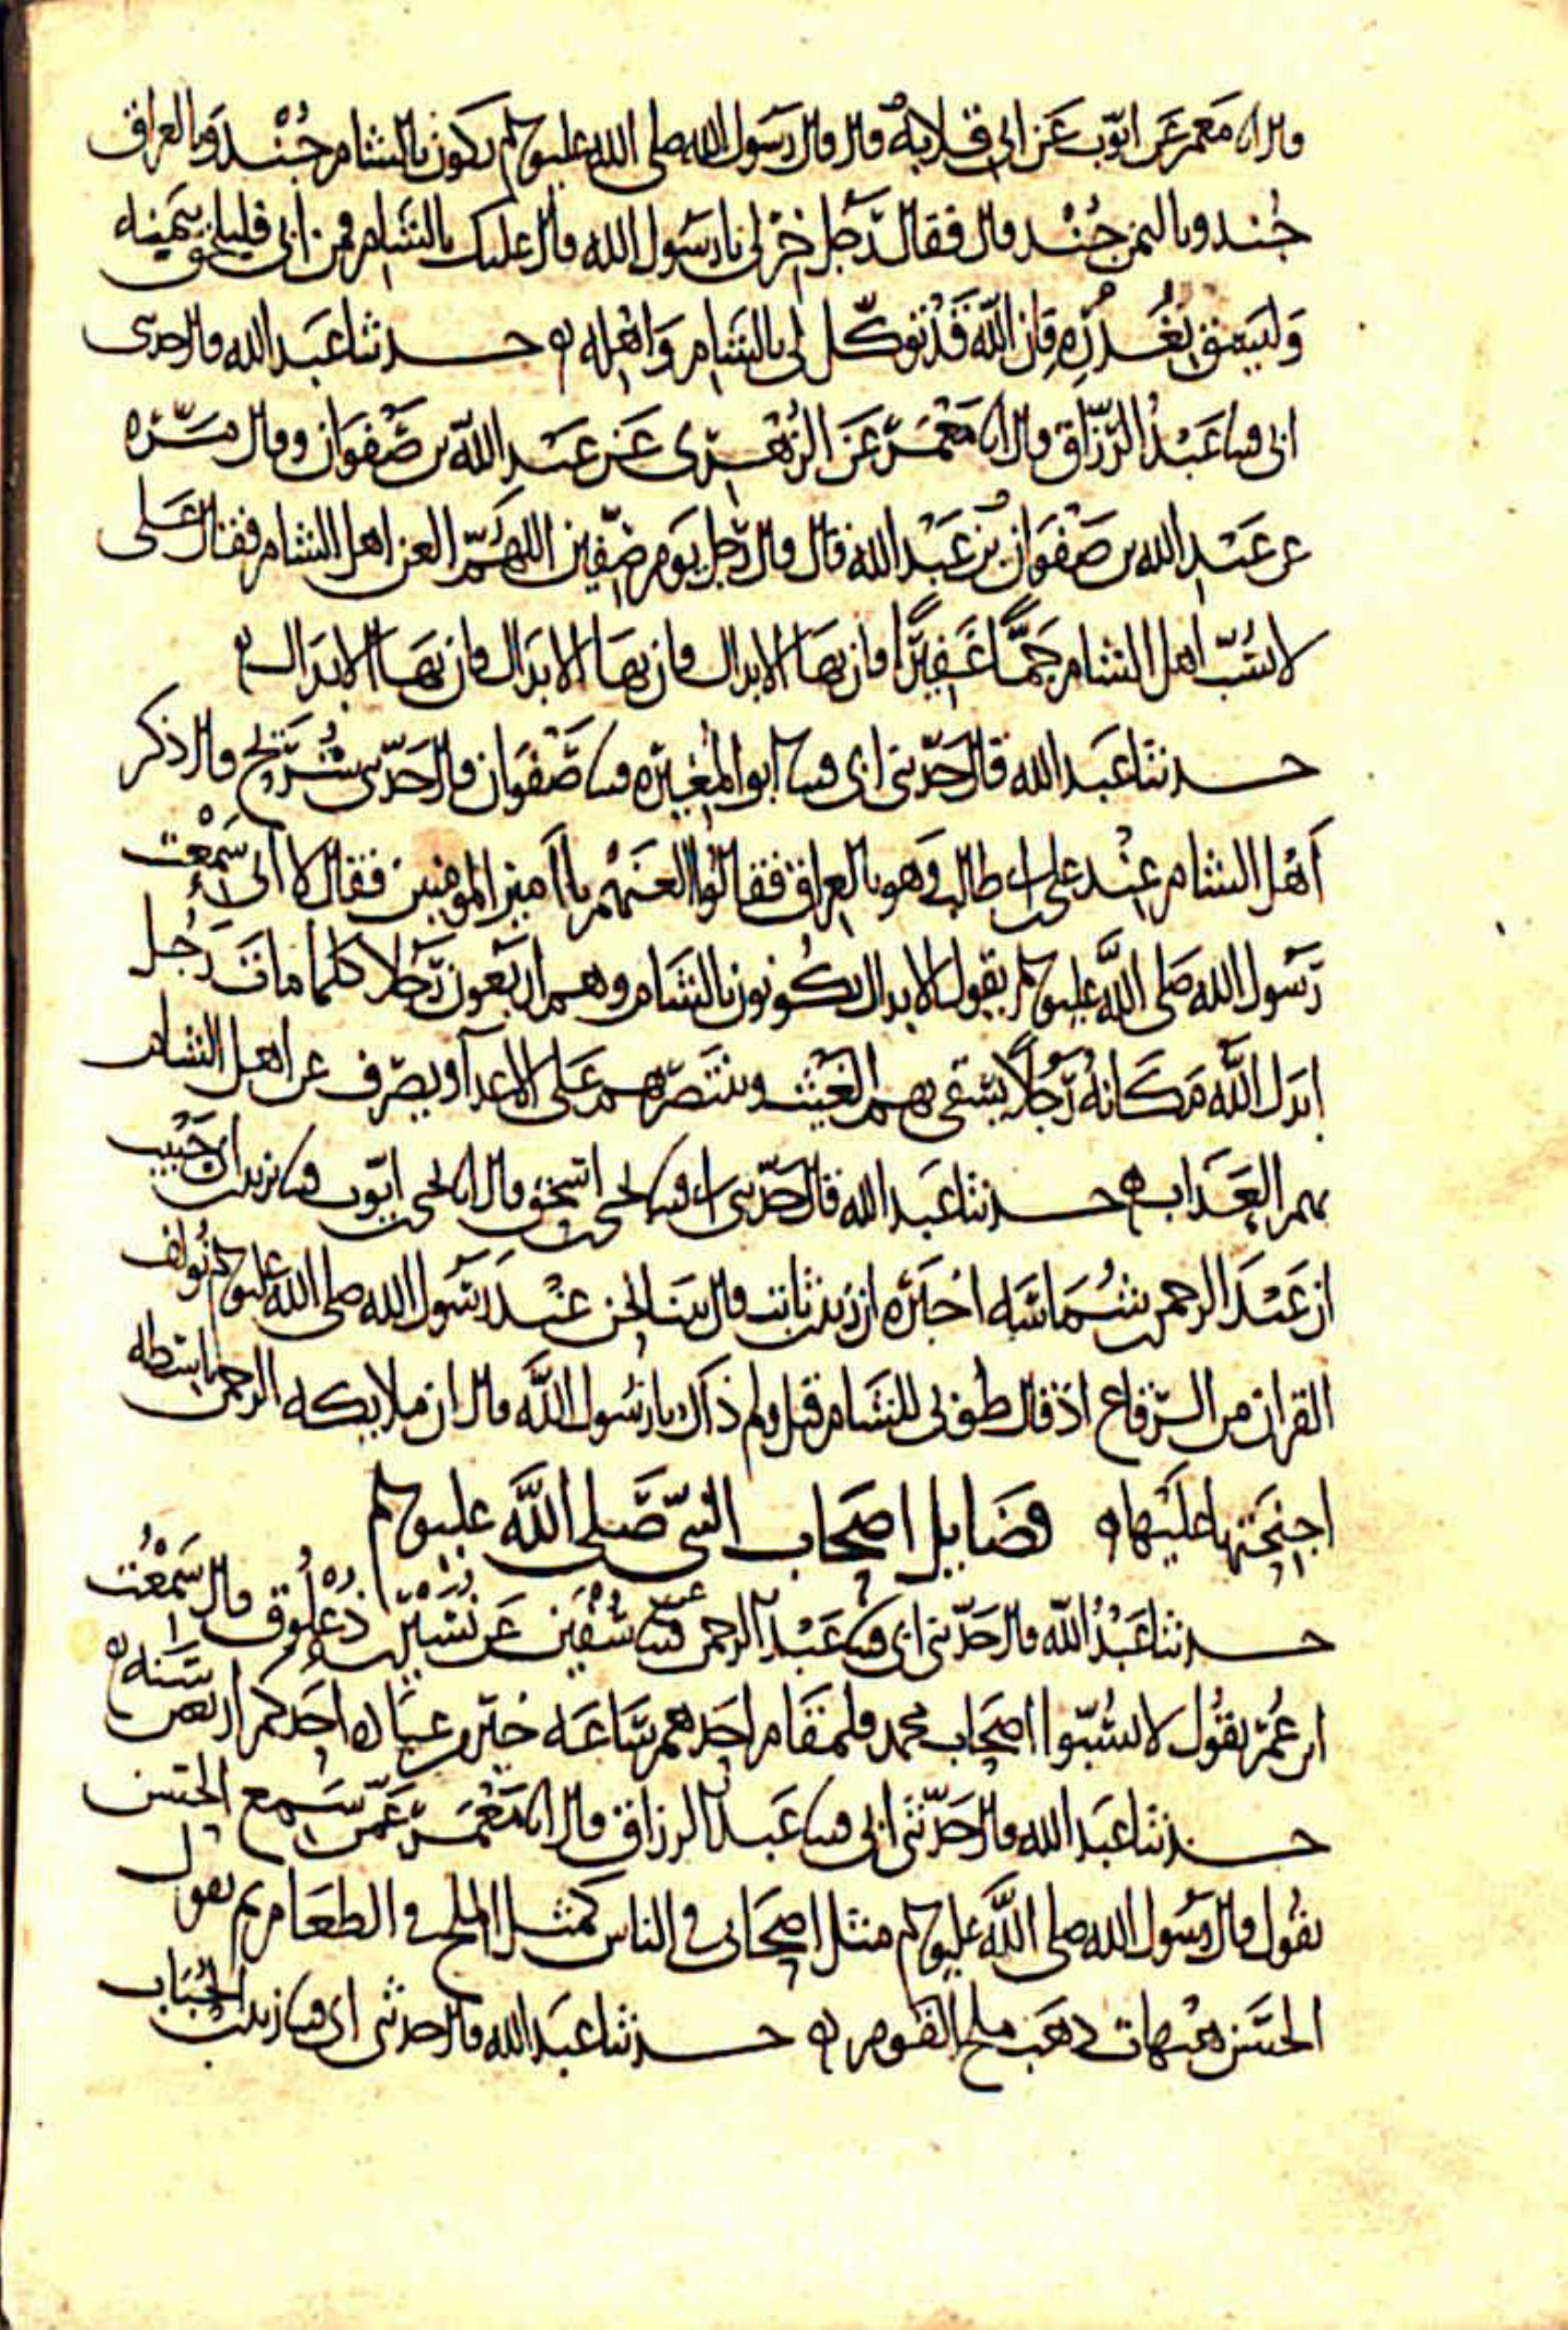 قال انا معمر عن ايوب عن ابي قلابة قال قال رسول الله صلى الله عليه وسلم يكون بالشام جند وبالعراق
جند وباليمن جند قال فقال رجل خر لي يا رسول الله قال عليك بالشام فمن ابى فليلحق بيمنه
وليسق بغدره فان الله قد توكل لي بالشام واهله حدثنا عبد الله قال حدثني
ابي قثنا عبد الرزاق قال انا معمر عن الزهري عن عبد الله بن صفوان وقال مرة
عن عبد الله بن صفوان بن عبد الله قال قال رجل يوم صفين اللهم العن اهل الشام فقال علي
لا تسب اهل الشام جما غفيرا فان بها الابدال فان بها الابدال فان بها الابدال
حدثنا عبد الله قال حدثني ابي قثنا ابو المغيرة قثنا صفوان قال حدثني شريح قال ذكر
اهل الشام عند علي بن ابي طالب وهو بالعراق فقالوا العنهم يا امير المومنين فقال لا اني سمعت
رسول الله صلى الله عليه وسلم يقول الابدال يكونون بالشام وهم اربعون رجلا كلما مات رجل
ابدل الله مكانه رجلا يسقى بهم الغيث وينتصر بهم على الاعدا ويصرف عن اهل الشام
بهم العذاب حدثنا عبد الله قال حدثني ابي قثنا يحيى بن اسحق قال انا يحيى بن ايوب قثنا يزيد بن ابي حبيب
ان عبد الرحمن بن شماسه اخبره ان زيد بن ثابت قال بينا نحن عند رسول الله صلى الله عليه وسلم نولف
القران من الرقاع اذ قال طوبى للشام قيل ولم ذاك يا رسول الله قال ان ملايكه الرحمن باسطه
اجنحتها عليها فضايل اصحاب النبي صلى الله عليه وسلم
حدثنا عبد الله قال حدثني ابي قثنا عبد الرحمن قثنا سفين عن نسير بن ذعلوق قال سمعت
ابن عمر يقول لا تسبوا اصحاب محمد فلمقام احدهم ساعه خير من عباده احدكم اربعين سنه
حدثنا عبد الله قال حدثني ابي قثنا عبد الرزاق قال انا معمر عمن سمع الحسن
يقول قال رسول الله صلى الله عليه وسلم مثل اصحابي في الناس كمثل الملح في الطعام ثم يقول
الحسن هيهات ذهب ملح القوم حدثنا عبد الله قال حدثني ابي قثنا زيد بن الحباب